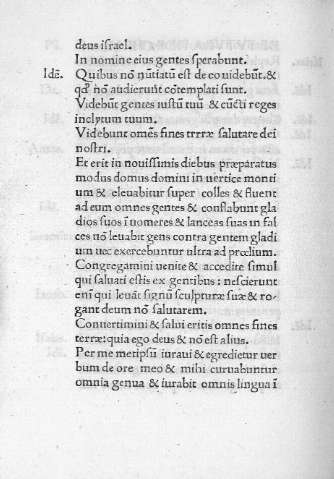 deus israel.
In nomine eius gentes sperabunt.
Idē. Quibus nō nūtiatū est de eo uidebūt. &
qđ nō audierunt cōtemplati sunt.
Videbūt gentes iustū tuū & cūcti reges
inclytum tuum.
Videbunt omēs fines terræ salutare dei
nostri.
Et erit in nouissimis diebus præparatus
modus domus domini in uertice monti
um & eleuabitur super colles & fluent
ad eum omnes gentes & conflabunt gla
dios suos ī uomeres & lanceas suas in fal
ces nō leuabit gens contra gentem gladi
um nec exercebuntur ultra ad prœlium.
Congregamini uenite & accedite simul
qui saluati estis ex gentibus: nescierunt
enī qui leuāt signū sculpturæ suæ & ro-
gant deum nō salutarem.
Conuertimini & salui eritis omnes fines
terræ: quia ego deus & nō est alius.
Per me metipsū iuraui & egredietur uer
bum de ore meo & mihi curuabuntur
omnia genua & iurabit omnis lingua ī